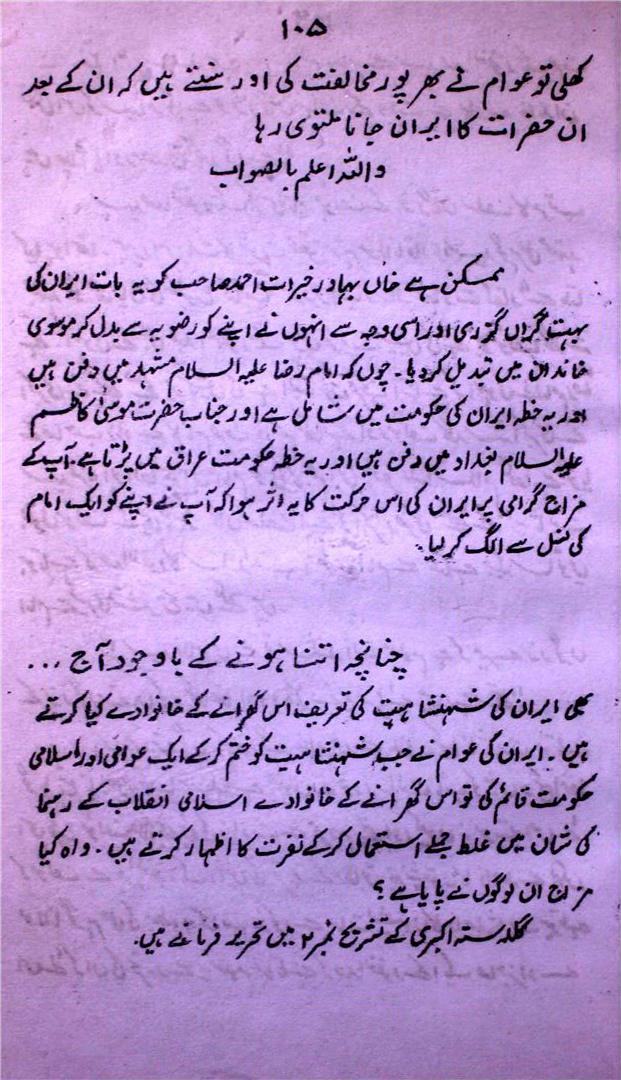 ۱۰۵
کھلی تو عوام نے بھرپور مخالفت کی اور سنتے ہیں کہ ان کے بعد
ان حضرات کا ایران جانا ملتوی رہا
واللہ اعلم بالصواب
ممکن ہے خاں بہادر خیرات احمد صاحب کو یہ بات ایران کی
بہت گراں گزری اور اسی وجہ سے انہوں نے اپنے کو رضویہ سے بدل کر موسوی
خاندان میں تبدیل کر دیا۔ چوں کہ امام رضا علیہ السلام مشہد میں دفن ہیں
اور یہ خطہ ایران کی حکومت میں شامل ہے اور جناب حضرت موسیٰ کاظم
علیہ السلام بغداد میں دفن ہیں اور یہ خطہ حکومت عراق میں پڑتا ہے، آپ کے
مزاج گرامی پر ایران کی اس حرکت کا یہ اثر ہوا کہ آپ نے اپنے کو ایک امام
کی نسل سے الگ کر لیا۔
چنانچہ اتنا ہونے کے باوجود آج ...
بھی ایران کی شہنشاہیت کی تعریف اس گھرانے کے خانوادے کیا کرتے
ہیں۔ ایران کی عوام نے جب شہنشاہیت کو ختم کر کے ایک عوامی اور اسلامی
حکومت قائم کی تو اس گھرانے کے خانوادے اسلامی انقلاب کے رہنما
کی شان میں غلط جملے استعمال کر کے نفرت کا اظہار کرتے ہیں۔ واہ کیا
مزاج ان لوگوں نے پایا ہے؟
گلدستہ اکبری کے تشریح نمبر ۲ میں تحریر فرماتے ہیں۔